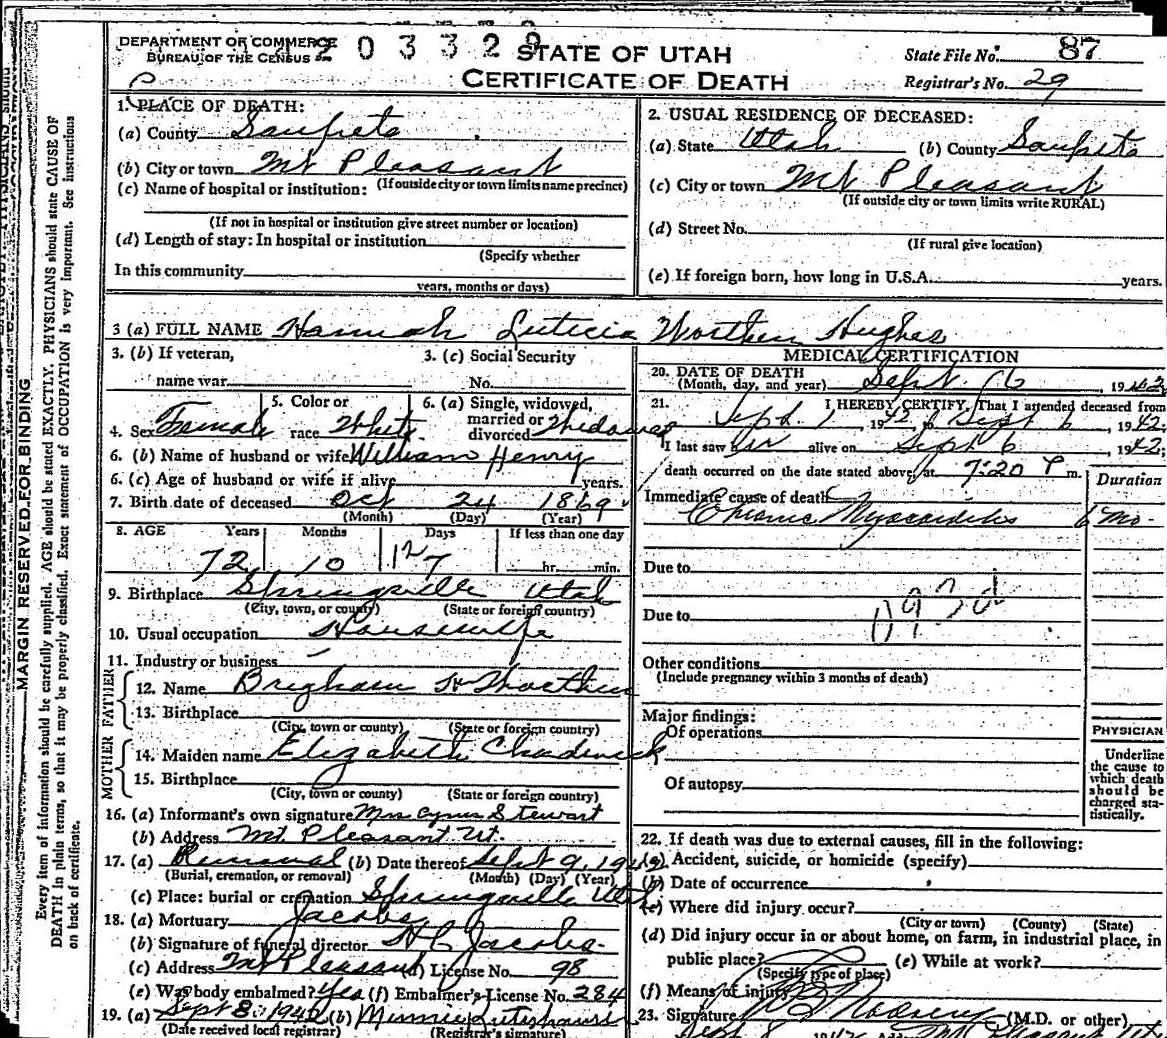 DEPARTMENT OF COMMERCE
BUREAU OF THE CENSUS
203329
STATE OF UTAH
CERTIFICATE OF DEATH
State File No. 87
Registrar's No. 29
1. PLACE OF DEATH:
(a) County Sanpete
(b) City or town Mt Pleasant
(If outside city or town limits name precinct)
(c) Name of hospital or institution:
(If not in hospital or institution give street number or location)
(d) Length of stay: In hospital or institution
(Specify whether
In this community
years, months or days)
2. USUAL RESIDENCE OF DECEASED:
(a) State Utah (b) County Sanpete
(c) City or town Mt Pleasant
(If outside city or town limits write RURAL)
(d) Street No.
(If rural give location)
(e) If foreign born, how long in U.S.A. years.
3 (a) FULL NAME Hannah Luticia Worthen Hughes
3. (b) If veteran,
name war
3. (c) Social Security
No.
4. Sex Female
5. Color or
race White
6. (a) Single, widowed,
married or
divorced Widowed
6. (b) Name of husband or wife William Henry
6. (c) Age of husband or wife if alive years.
7. Birth date of deceased Oct 24 1869
(Month) (Day) (Year)
8. AGE Years Months Days If less than one day
72 10 12 hr. min.
9. Birthplace Springville Utah
(City, town, or county) (State or foreign country)
10. Usual occupation Housewife
11. Industry or business –
FATHER
12. Name Brigham H Worthen
13. Birthplace
(City, town or county) (State or foreign country)
MOTHER
14. Maiden name Elizabeth Chadwick
15. Birthplace
(City, town or county) (State or foreign country)
16. (a) Informant's own signature Mrs Cyrus Stewart
(b) Address Mt. Pleasant Ut.
17. (a) Removal (b) Date thereof Sept 9, 1942
(Burial, cremation, or removal) (Month) (Day) (Year)
(c) Place: burial or cremation Springville Utah
18. (a) Mortuary Jacobs
(b) Signature of funeral director H C Jacobs
(c) Address Mt Pleasant (d) License No. 98
(e) Was body embalmed? Yes (f) Embalmer's License No. 284
19. (a) Sept 8, 1942 (b) Minnie
(Date received local registrar) (Registrar's signature)
MEDICAL CERTIFICATION
20. DATE OF DEATH
(Month, day, and year) Sept 6, 1942
21. I HEREBY CERTIFY, That I attended deceased from
Sept. 1 1942, to Sept 6, 1942.
I last saw her alive on Sept 6 1942;
death occurred on the date stated above, at 7:20 P m.
Duration
Immediate cause of death
Chronic Myocarditis 6 mo.
Due to
Due to
093d
Other conditions
(Include pregnancy within 3 months of death)
Major findings:
Of operations
Of autopsy
PHYSICIAN
Underline
the cause to
which death
should be
charged sta-
tistically.
22. If death was due to external causes, fill in the following:
(a) Accident, suicide, or homicide (specify)
(b) Date of occurrence
(c) Where did injury occur?
(City or town) (County) (State)
(d) Did injury occur in or about home, on farm, in industrial place, in
public place?
(Specify type of place)
(e) While at work?
(f) Means of injury
23. Signature (M.D. or other)
Sept 8 1942 Mt Pleasant
MARGIN RESERVED FOR BINDING
Every item of information should be carefully supplied. AGE should be stated EXACTLY. PHYSICIANS should state CAUSE OF
DEATH in plain terms, so that it may be properly classified. Exact statement of OCCUPATION is very important. See instructions
on back of certificate.